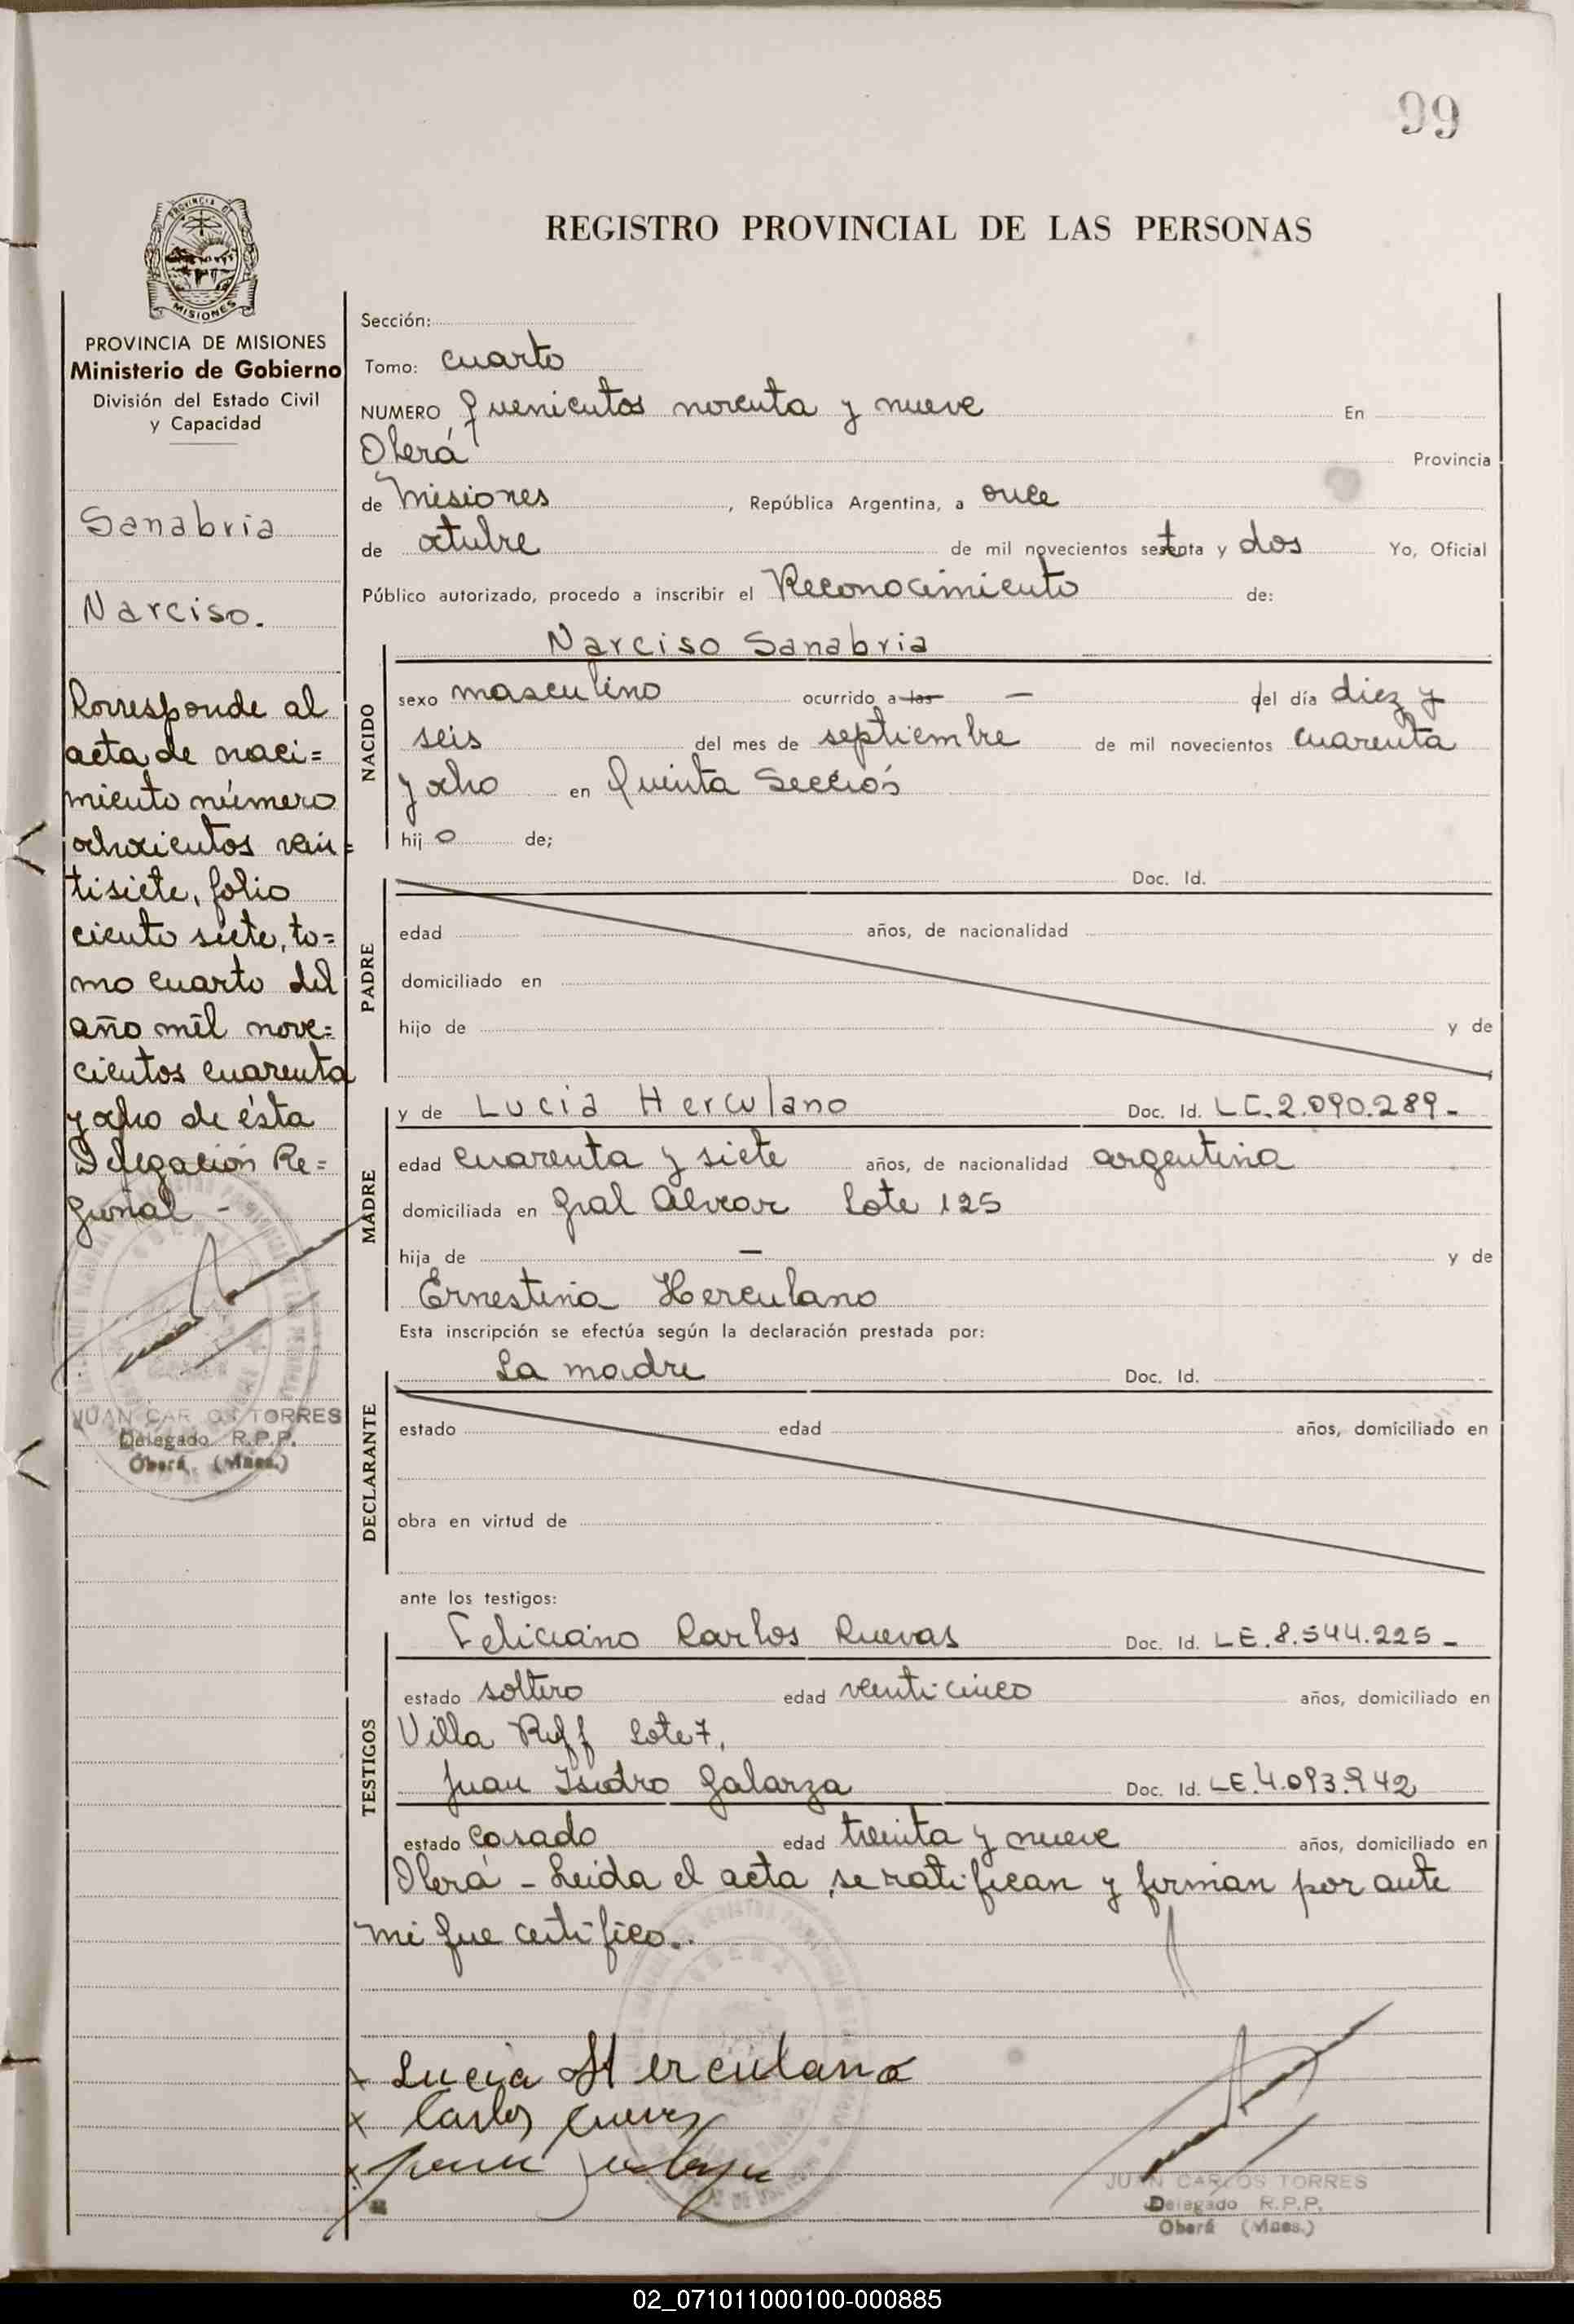 99
PROVINCIA DE
MISIONES
REGISTRO PROVINCIAL DE LAS PERSONAS
PROVINCIA DE MISIONES
Ministerio de Gobierno
División del Estado Civil
y Capacidad
Sanabria
Narciso.
Corresponde al
acta de naci=
miento número
ochocientos vein=
tisiete, folio
ciento siete, to=
mo cuarto del
año mil nove=
cientos cuarenta
y ocho de ésta
Delegación Re=
gional -
JUAN CARLOS TORRES
Delegado R.P.P.
Oberá (Mnes.)
Sección:
Tomo: cuarto
NUMERO quinientos noventa y nueve En
Oberá Provincia
de Misiones, República Argentina, a once
de octubre de mil novecientos setenta y dos Yo, Oficial
Público autorizado, procedo a inscribir el Reconocimiento de:
NACIDO
Narciso Sanabria
sexo masculino ocurrido a las — del día diez y
seis del mes de septiembre de mil novecientos cuarenta
y ocho en Quinta Sección
hijo de;
PADRE
Doc. Id.
edad años, de nacionalidad
domiciliado en
hijo de y de
MADRE
y de Lucia Herculano Doc. Id. LC.2.090.289-
edad cuarenta y siete años, de nacionalidad argentina
domiciliada en Gral Alvear Lote 125
hija de — y de
Ernestina Herculano
Esta inscripción se efectúa según la declaración prestada por:
DECLARANTE
La madre Doc. Id.
estado edad años, domiciliado en
obra en virtud de
ante los testigos:
TESTIGOS
Feliciano Carlos Cuevas Doc. Id. LE.8.544.225-
estado soltero edad venticinco años, domiciliado en
Villa Ruff Lote 7,
Juan Isidro Galarza Doc. Id. LE.4.093.942
estado casado edad treinta y nueve años, domiciliado en
Oberá - Leida el acta, se ratifican y firman por ante
mi que certifico..
x Lucia Herculano
x Carlos Cuevas
x
JUAN CARLOS TORRES
Delegado R.P.P.
Oberá (Mnes.)
02_071011000100-000885